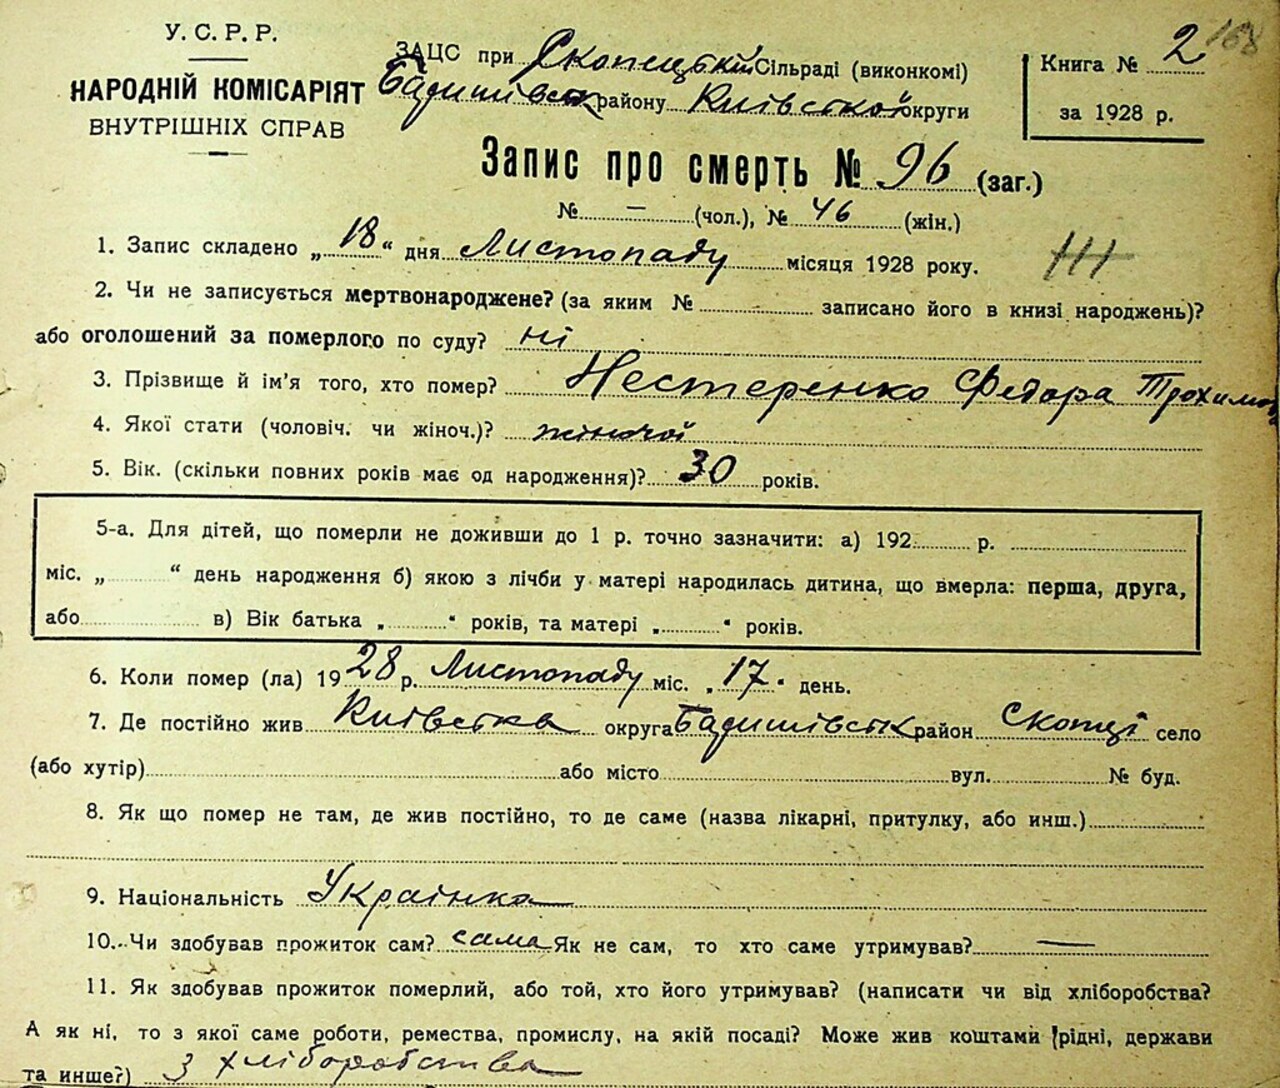 У. С. Р. Р.
НАРОДНІЙ КОМІСАРІЯТ
ВНУТРІШНІХ СПРАВ
ЗАЦС при Скопецькій Сільраді (виконкомі)
Бадишівськ району Київської округи
Книга № 2 168
за 1928 р.
Запис про смерть № 96 (заг.)
№ — (чол.), № 46 (жін.)
1. Запис складено „18“ дня Листопаду місяця 1928 року.
2. Чи не записується мертвонароджене? (за яким № записано його в книзі народжень)?
або оголошений за померлого по суду? ні
3. Прізвище й ім'я того, хто помер? Нестеренко Федора Трохимов
4. Якої стати (чоловіч. чи жіноч.)? жіночой
5. Вік. (скільки повних років має од народження)? 30 років.
5-а. Для дітей, що померли не доживши до 1 р. точно зазначити: а) 192 р.
міс. „ “ день народження б) якою з лічби у матері народилась дитина, що вмерла: перша, друга,
або в) Вік батька „ “ років, та матері „ “ років.
6. Коли помер (ла) 1928 р. Листопаду міс. „17“ день.
7. Де постійно жив Київська округа Бадишівськ район Скопці село
(або хутір) або місто вул. № буд.
8. Як що помер не там, де жив постійно, то де саме (назва лікарні, притулку, або инш.)
9. Національність Українка
10. Чи здобував прожиток сам? сама Як не сам, то хто саме утримував? —
11. Як здобував прожиток померлий, або той, хто його утримував? (написати чи від хліборобства?
А як ні, то з якої саме роботи, ремества, промислу, на якій посаді? Може жив коштами (рідні, держави
та инше?) З хліборобства